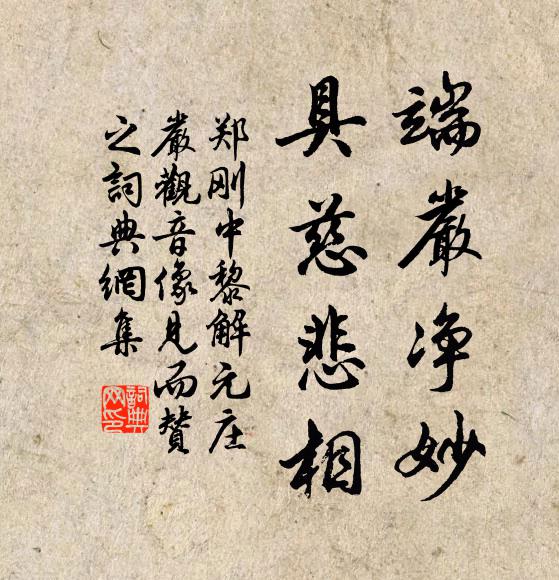 端嚴净妙
具慈悲相
郑刚中黎解元庄
嚴觀音像見而贊
之詞典網集
詞典
网印